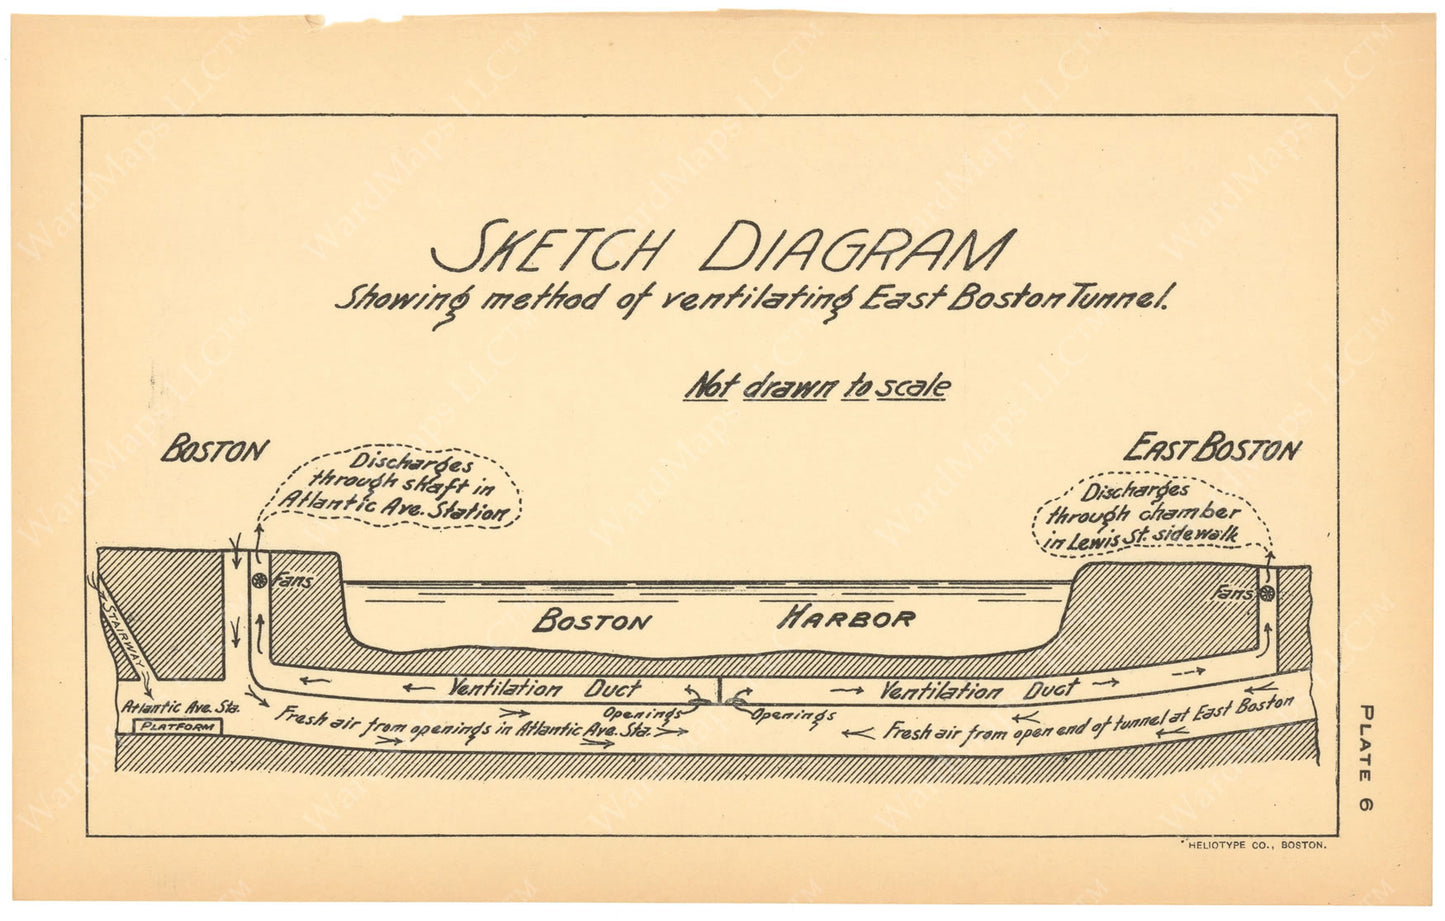 SKETCH DIAGRAM
Showing method of ventilating East Boston Tunnel.
Not drawn to scale
BOSTON
EAST BOSTON
Discharges
through shaft in
Atlantic Ave. Station
Discharges
through chamber
in Lewis St. sidewalk
Fans
Fans
BOSTON HARBOR
STAIRWAY
Ventilation Duct
Ventilation Duct
Atlantic Ave. Sta.
PLATFORM
Openings
Openings
Fresh air from openings in Atlantic Ave. Sta.
Fresh air from open end of tunnel at East Boston
PLATE 6
HELIOTYPE CO., BOSTON.
WardMaps LLC™